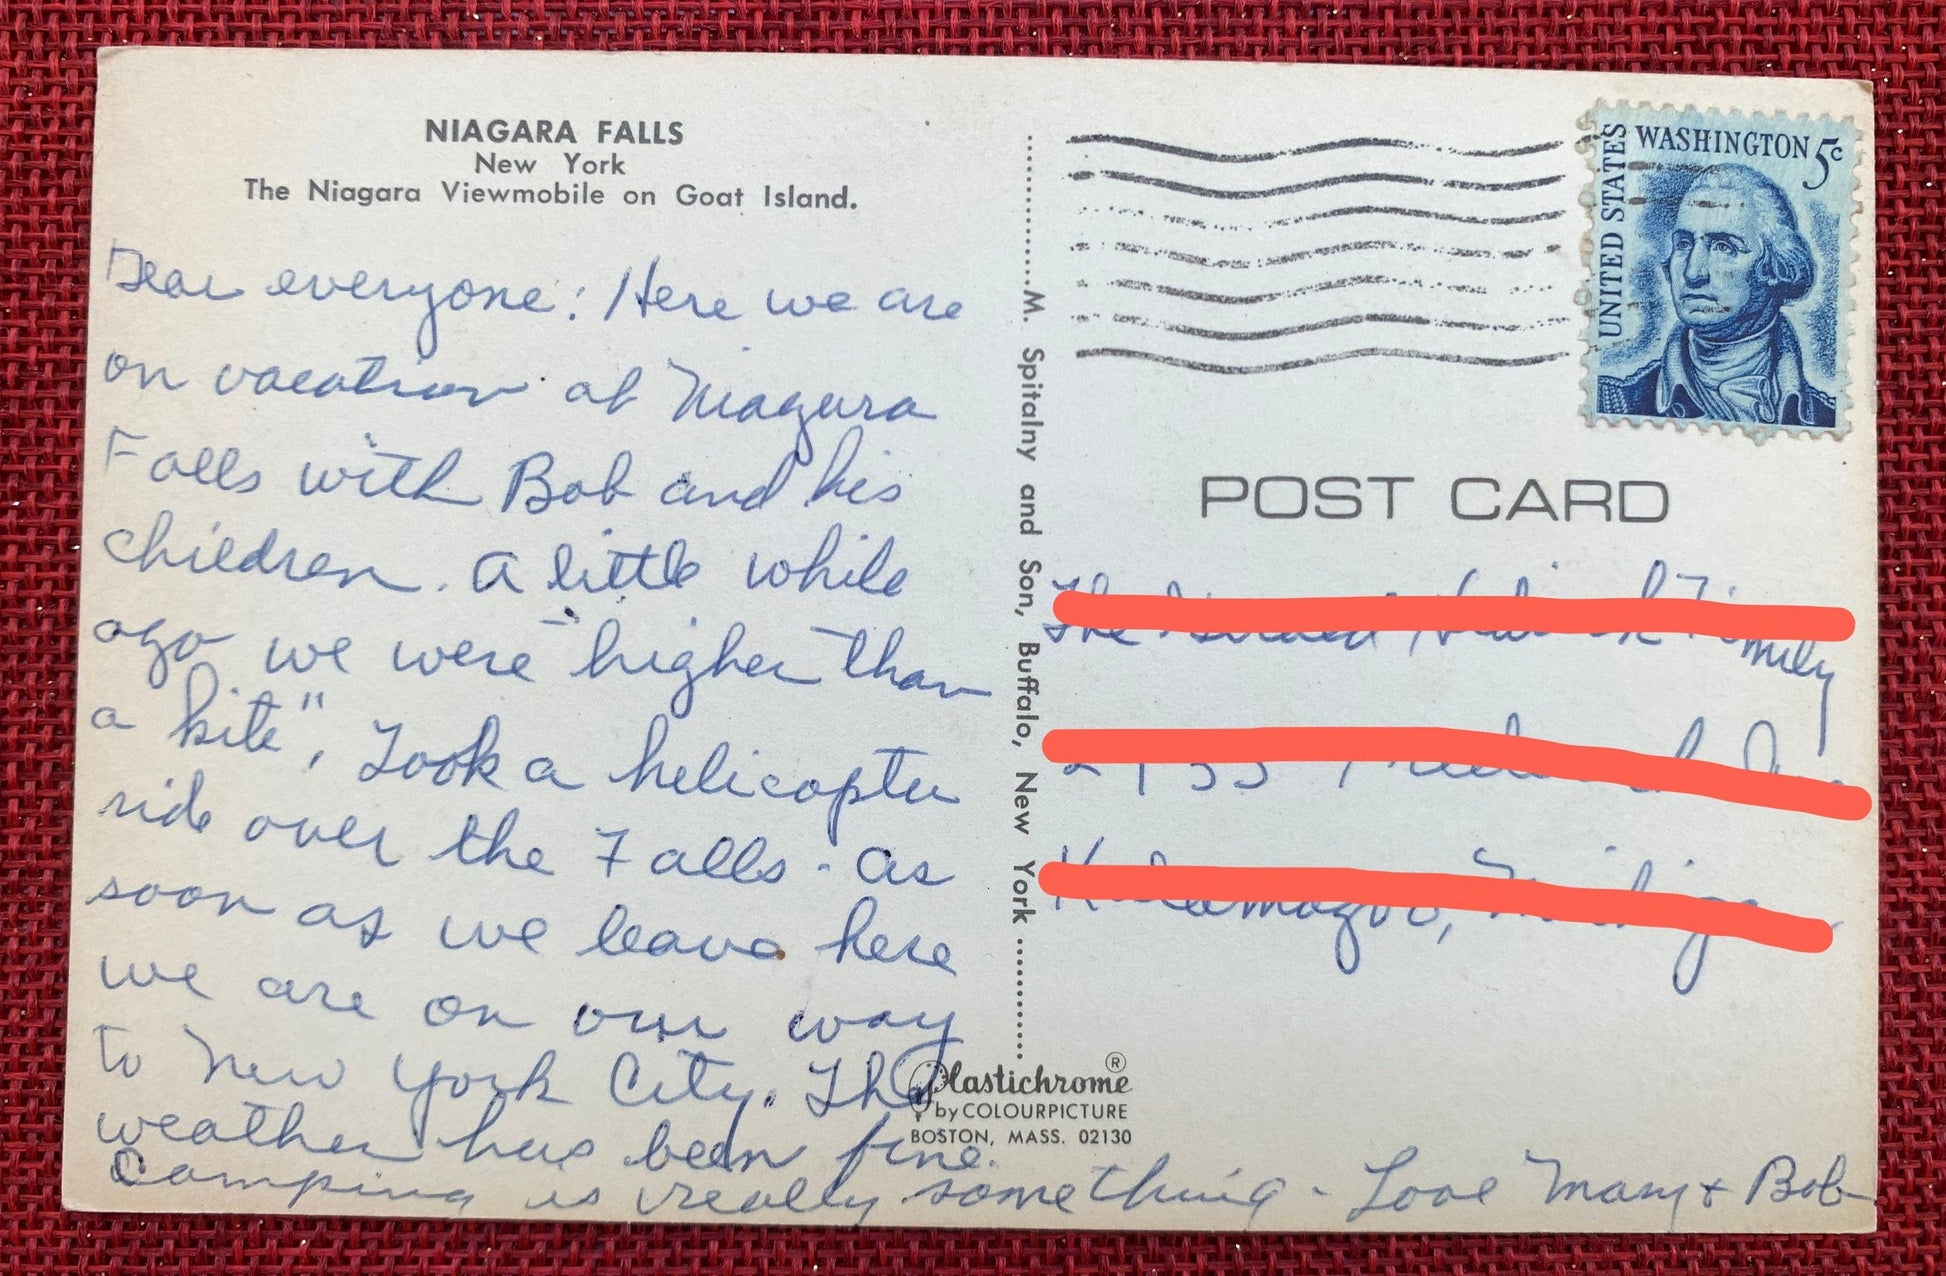 NIAGARA FALLS
New York
The Niagara Viewmobile on Goat Island.
Dear everyone: Here we are
on vacation at Niagara
Falls with Bob and his
children. A little while
ago we were "higher than
a kite", Took a helicopter
ride over the Falls - As
soon as we leave here
we are on our way
to New York City. The
weather has been fine.
Camping is really something - Love Mary + Bob
M. Spitalny and Son, Buffalo, New York
UNITED STATES
WASHINGTON 5c
POST CARD
The Family
Plastichrome ®
by COLOURPICTURE
BOSTON, MASS. 02130